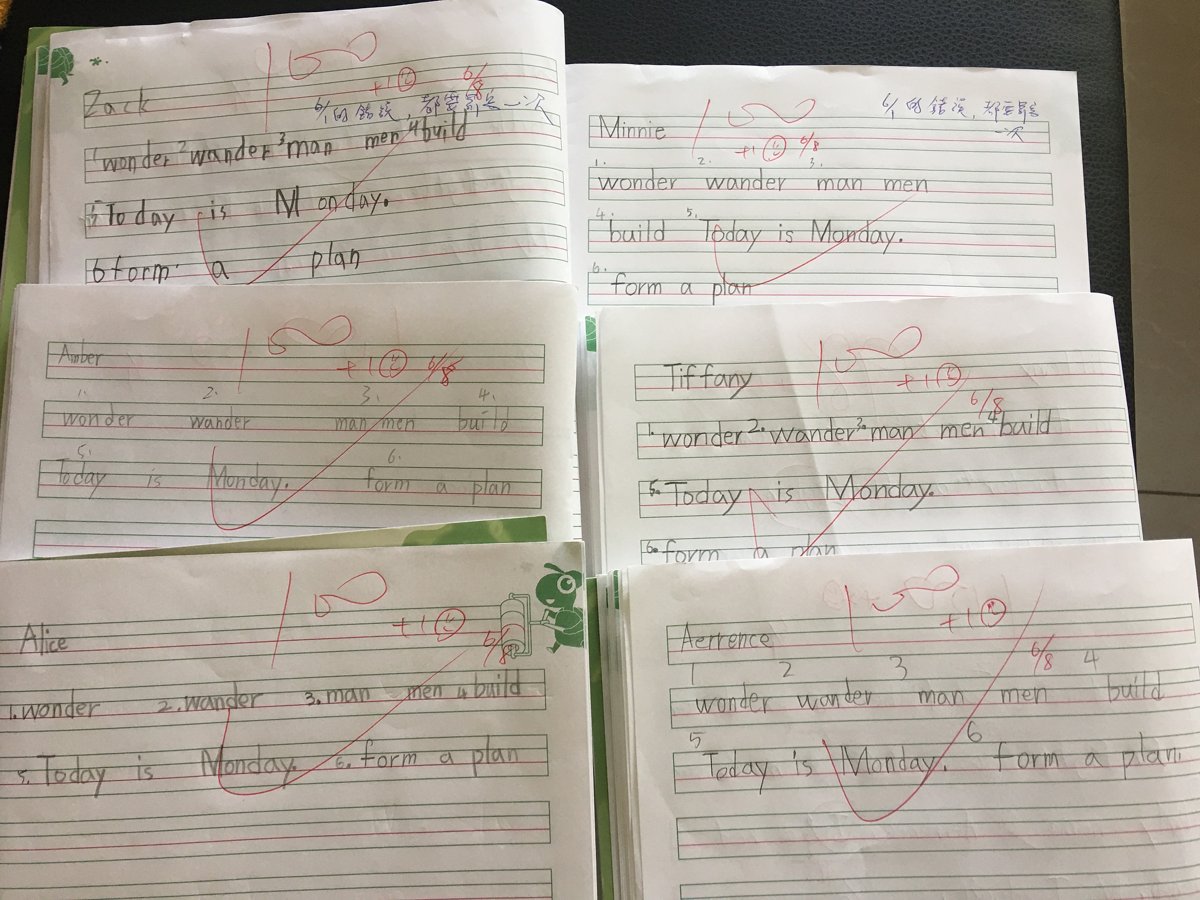 100
+1 6/8
Zack
6/1的錯誤,都要訂正一次
1 wonder 2 wander 3 man men 4 build
5 Today is Monday.
6 form a plan
100
6/1的錯誤,都要訂正
一次
Minnie
+1 6/8
1. 2. 3.
wonder wander man men
4. 5.
build Today is Monday.
6.
form a plan
100
Amber
+1 6/8
1. 2. 3. 4.
wonder wander man men build
5. 6.
Today is Monday. form a plan
100
Tiffany
+1
6/8
1. wonder 2. wander 3. man men 4 build
5. Today is Monday.
6. form a plan
100
+1
Alice
6/8
1. wonder 2. wander 3. man men 4 build
5. Today is Monday. 6. form a plan
100
+1
Aerrence
6/8
1 2 3 4
wonder wander man men build
5 6
Today is Monday. form a plan.